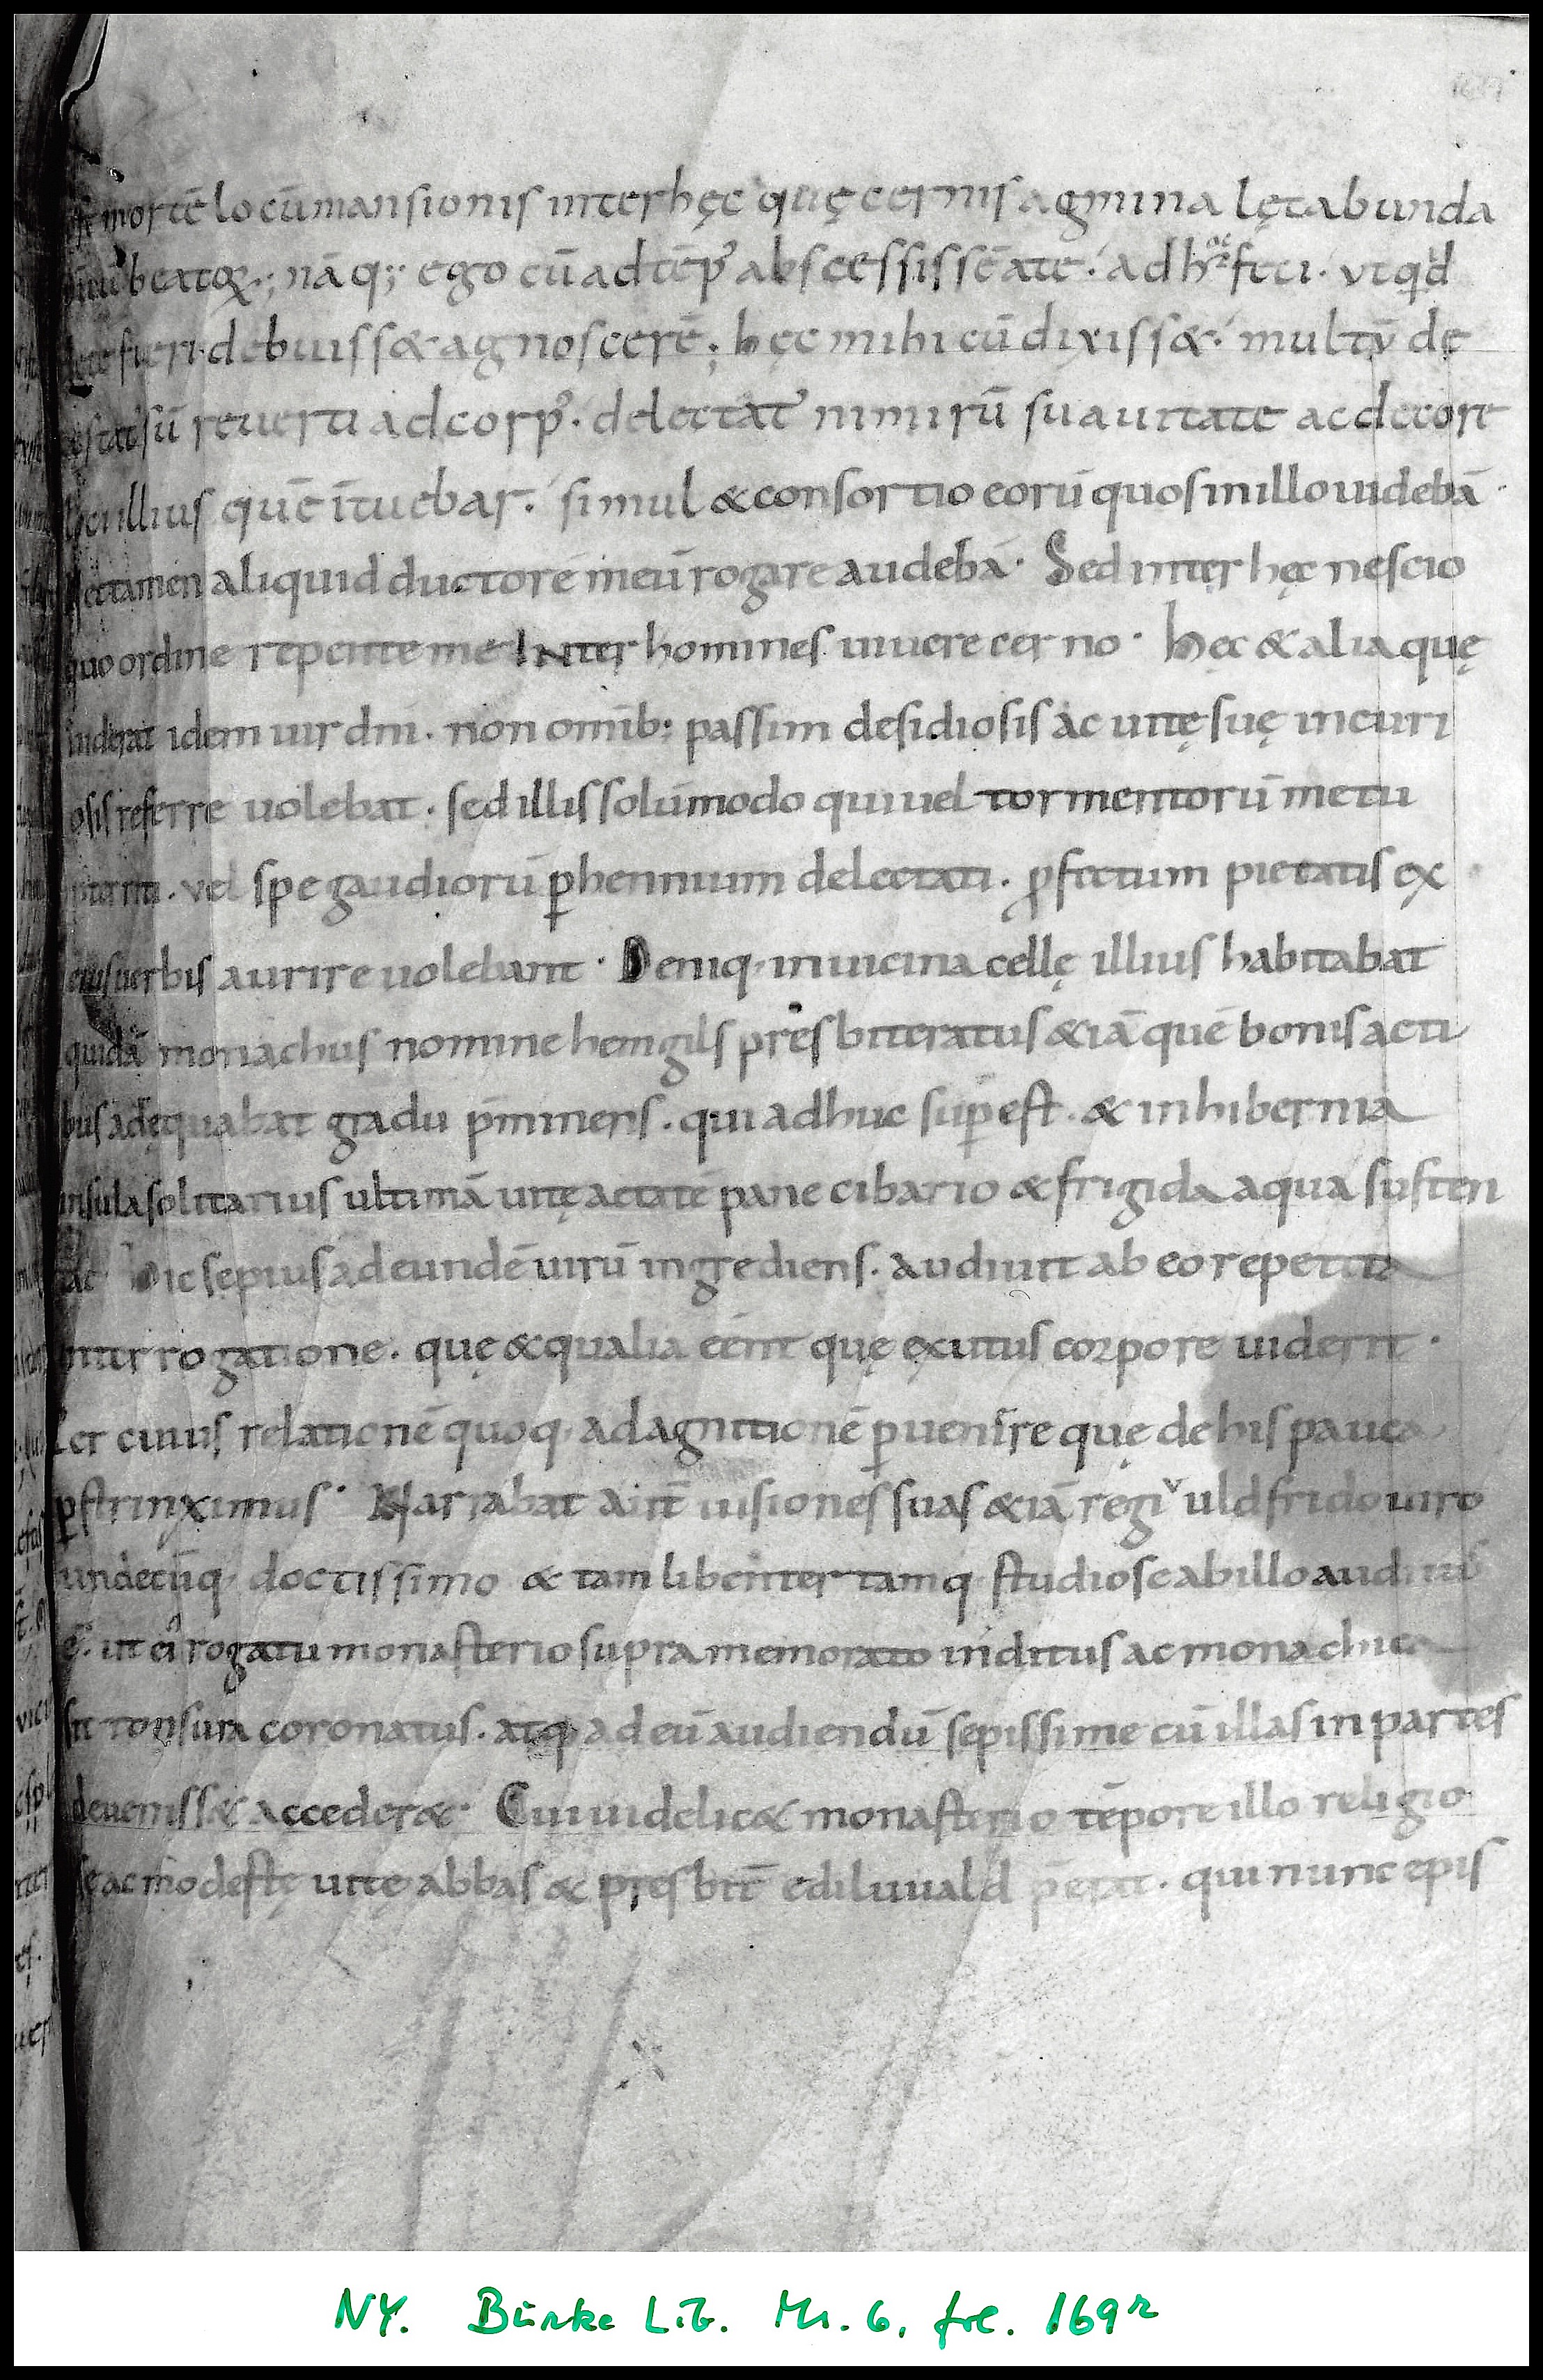 mortē locū mansionis inter hęc quę cernis agmina lętabunda
beatoꝝ·; nā q;; ego cū ad tēp᾽ abscessissē a te· ad hoc feci· vt quid
fieri debuiss& agnoscerē; hęc mihi cū dixiss&· multū de
sū reuerti ad corp᾽· delectat᾽ nimirū suauitate ac decore
illius quē ītuebar· simul & consortio eorū quos in illo uidebā·
ectamen aliquid ductorē meū rogare audebā· Sed inter hęc nescio
quo ordine repente me INter homines uiuere cerno· hęc & alia quę
uiderat idem uir dn̄i· non omīb; passim desidiosis ac uitę suę incuri
osis referre uolebat· sed illis solūmodo qui uel tormentorū metu
· vel spe gaudiorū ꝑhennium delectati· ꝓfectum pietatis ex
eius uerbis aurire uolebant· Deniq· in uicina cellę illius habitabat
quidā monachus nomine hemgils presbiteratus & iā quē bonis acti
bus adęquabat gradu p̄minens· qui adhuc suꝑest· & in hibernia
insula solitarius ultimā uitę aetatē pane cibario & frigida aqua susten
tat hic sepius ad eundē uirū ingrediens· audiuit ab eo repetita
interrogatione· quę & qualia eēnt quę exutus corpore uiderit·
Per cuius relationē quoq· ad agnitionē ꝑuenīre quę de his pauca
ꝑstrinximus· Narrabat aūt uisiones suas & iā regi v uldfrido uiro
undecūq· doctissimo & tam libenter tamq· studiose ab illo auditus
ē· ut ei᾽ rogatu monasterio supra memorato inditus ac monachica
sit tonsura coronatus· atq· ad eū audiendū sepissime cū illas in partes
deueniss& acceder&· Cui uidelic& monasterio tēpore illo religio
sę ac modestę uitę abbas & presbit̄ ediluuald p̄erat· qui nunc epis
NY. Burke Lib. Ms. 6, fol. 169r